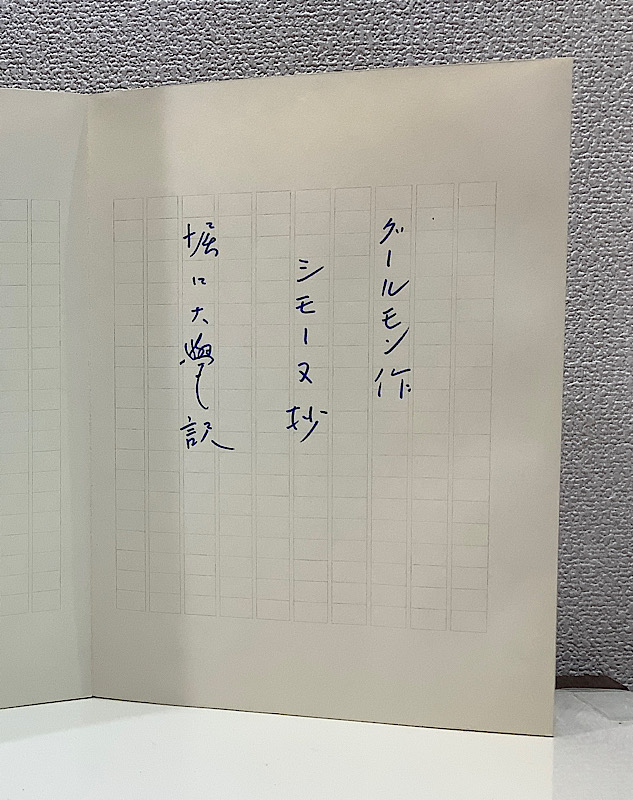 グールモン作
シモーヌ抄
堀口大學訳